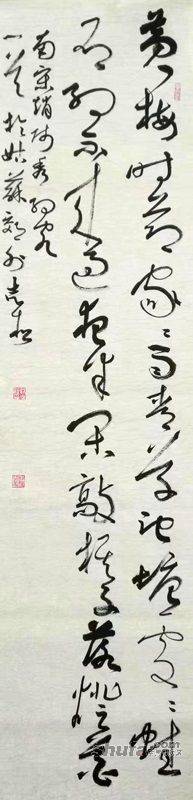 黄梅时节家々雨青草池塘处々蛙
有约不来过夜半闲敲棋子落灯花
南宋赵师秀约客
一首于姑苏